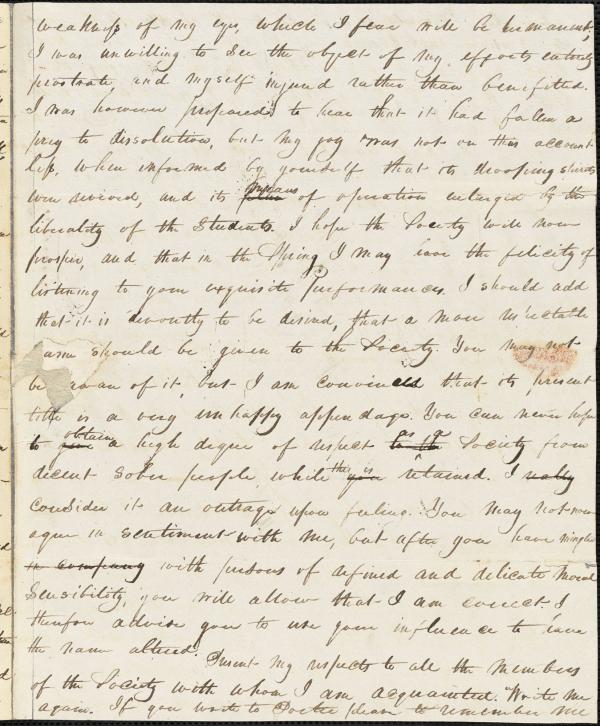 weakness of my eyes, which I fear will be permanent.
I was unwilling to see the object of my efforts entirely
prostrate, and myself injured rather than benefitted.
I was however prepared to hear that it had fallen a
prey to dissolution, but my joy was not on this account
less, when informed by yourself that its drooping spirits
were revived, and its means of operation enlarged by the
liberality of the Students. I hope the Society will now
prosper, and that in the Spring I may have the felicity of
listening to your exquisite performances. I should add
that it is devoutly to be desired, that a more respectable
name should be given to the Society. You may not
be aware of it, but I am convinced that its present
title is a very unhappy appendage. You can never hope
to obtain a high degree of respect as a Society from
decent sober people, while this is retained. I really
consider it an outrage upon feeling. You may not now
agree in sentiment with me, but after you have mingled
in company with persons of refined and delicate moral
Sensibility, you will allow that I am correct. I
therefore advise you to use your influence to have
the name altered.
Present my respects to all the members
of the Society with whom I am acquainted. Write me
again. If you write to please to remember me